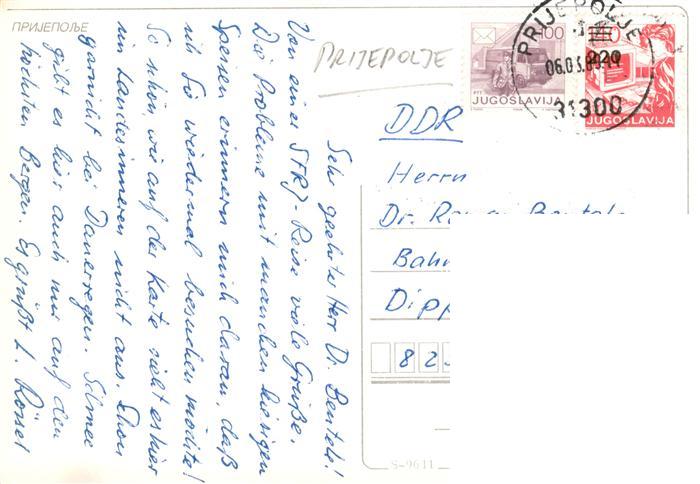 ПРИЈЕПОЉЕ
PRIJEPOLJE
Sehr geehrter Herr Dr. Bentele!
Von einer SFRJ-Reise viele Grüße.
Die Probleme mit manchen hiesigen
Speisen erinnern mich daran, daß
ich Sie wiedermal besuchen möchte!
So schön, wie auf der Karte sieht es hier
im Landesinneren nicht aus. Schon
garnicht bei Dauerregen. Schnee
gibt es hier auch nur auf den
höchsten Bergen. Es grüßt L. Rössel
100
PTT
JUGOSLAVIJA
PRIJEPOLJE
06.03.89
31300
220
JUGOSLAVIJA
DDR
Herrn
Dr.
Bah
Dipp
82
S-9611